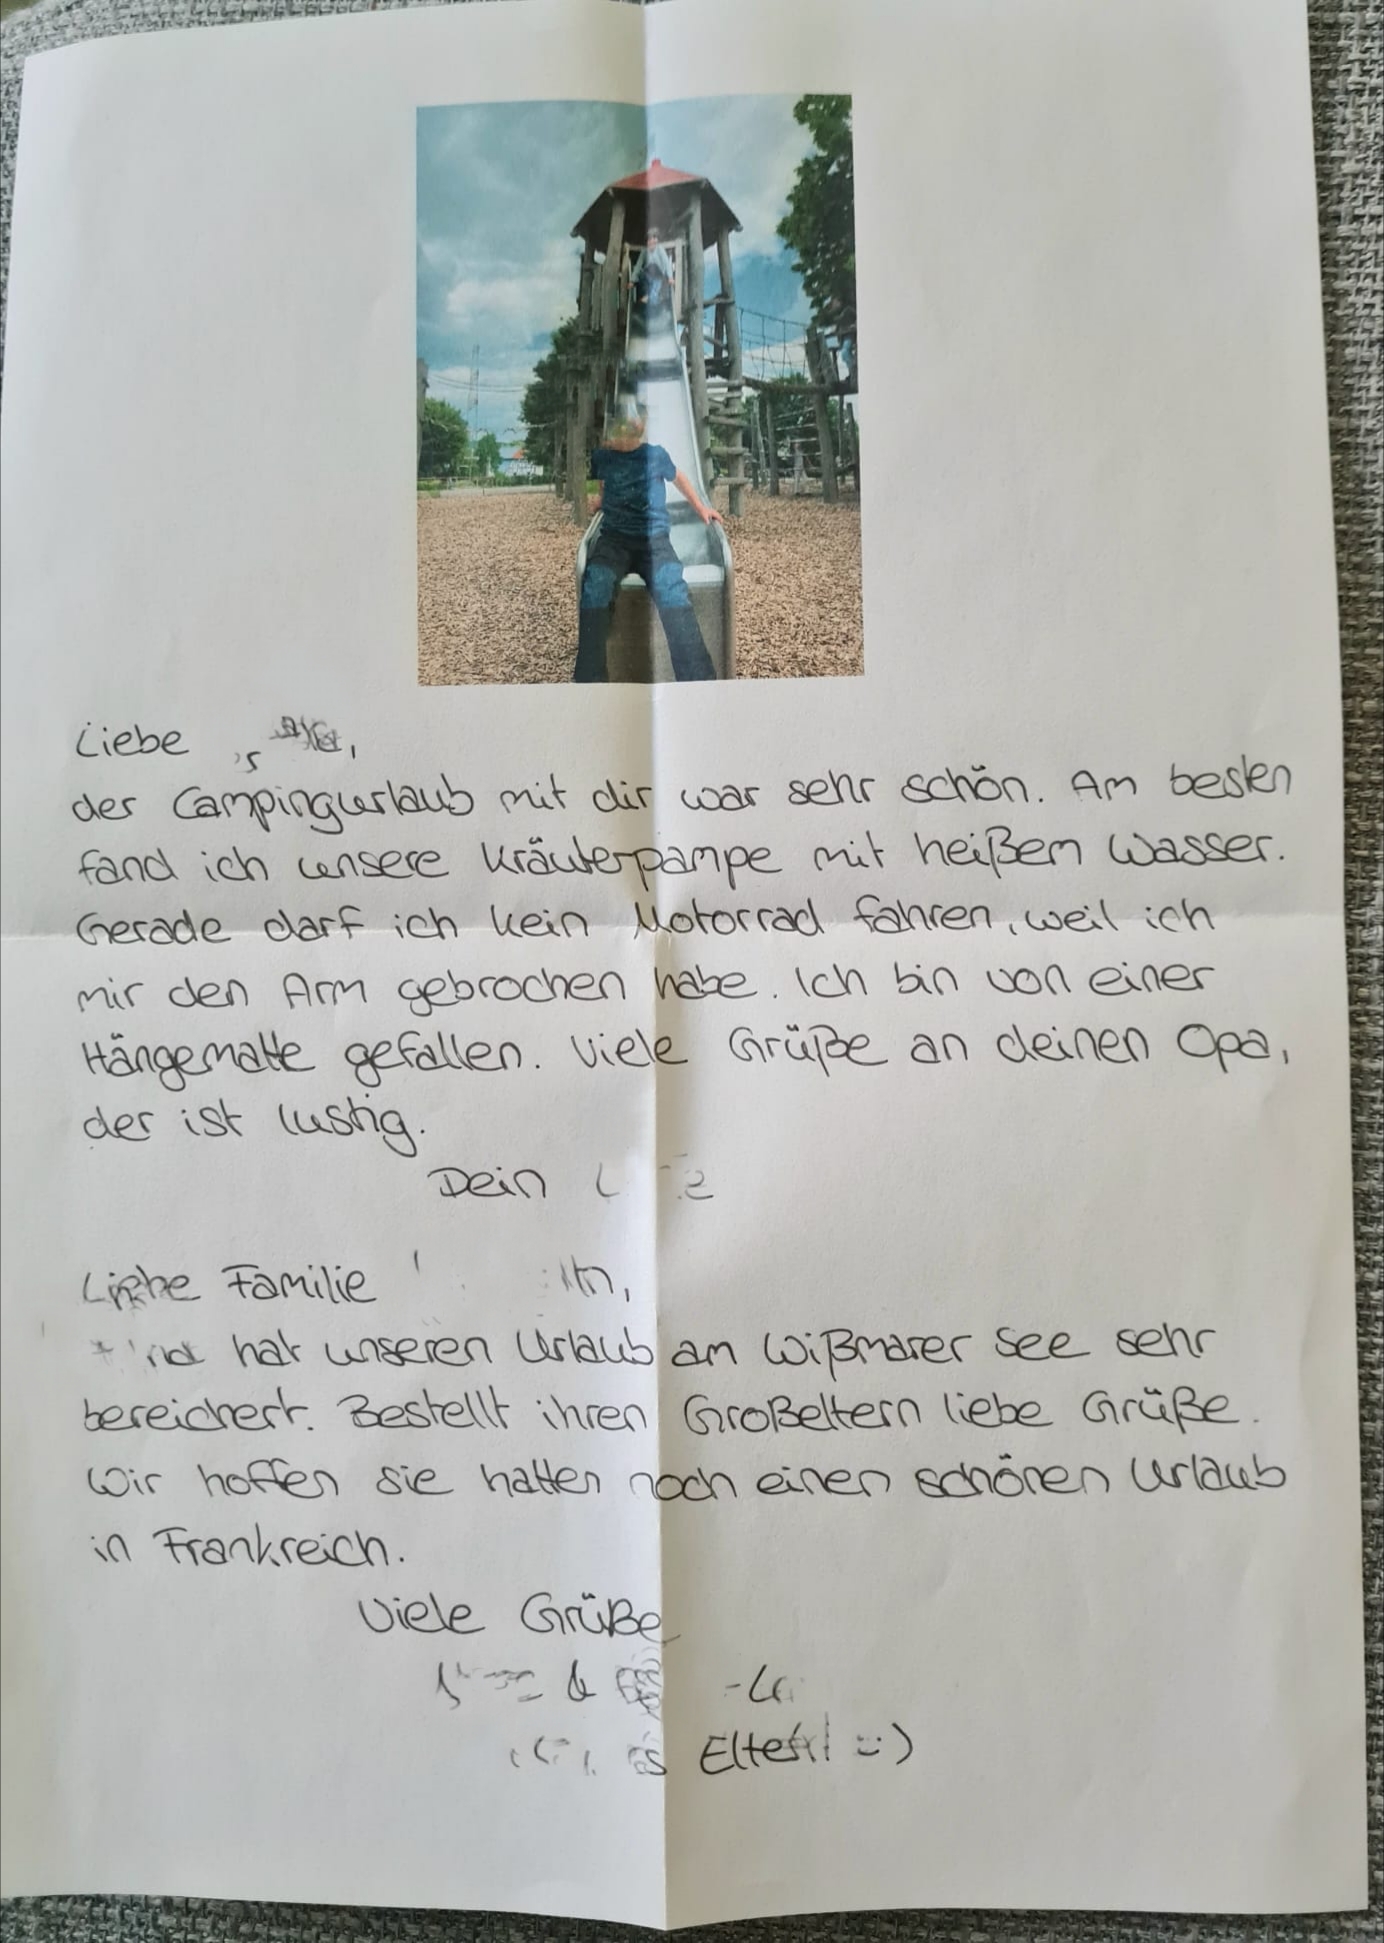 Liebe
der Campingurlaub mit dir war sehr schön. Am besten
fand ich unsere Kräuterpampe mit heißem Wasser.
Gerade darf ich kein Motorrad fahren, weil ich
mir den Arm gebrochen habe. Ich bin von einer
Hängematte gefallen. Viele Grüße an deinen Opa,
der ist lustig.
Dein
Liebe Familie
hat unseren Urlaub am Wißmarer See sehr
bereichert. Bestellt ihren Großeltern liebe Grüße.
Wir hoffen sie hatten noch einen schönen Urlaub
in Frankreich.
Viele Grüße
&
Eltern :)